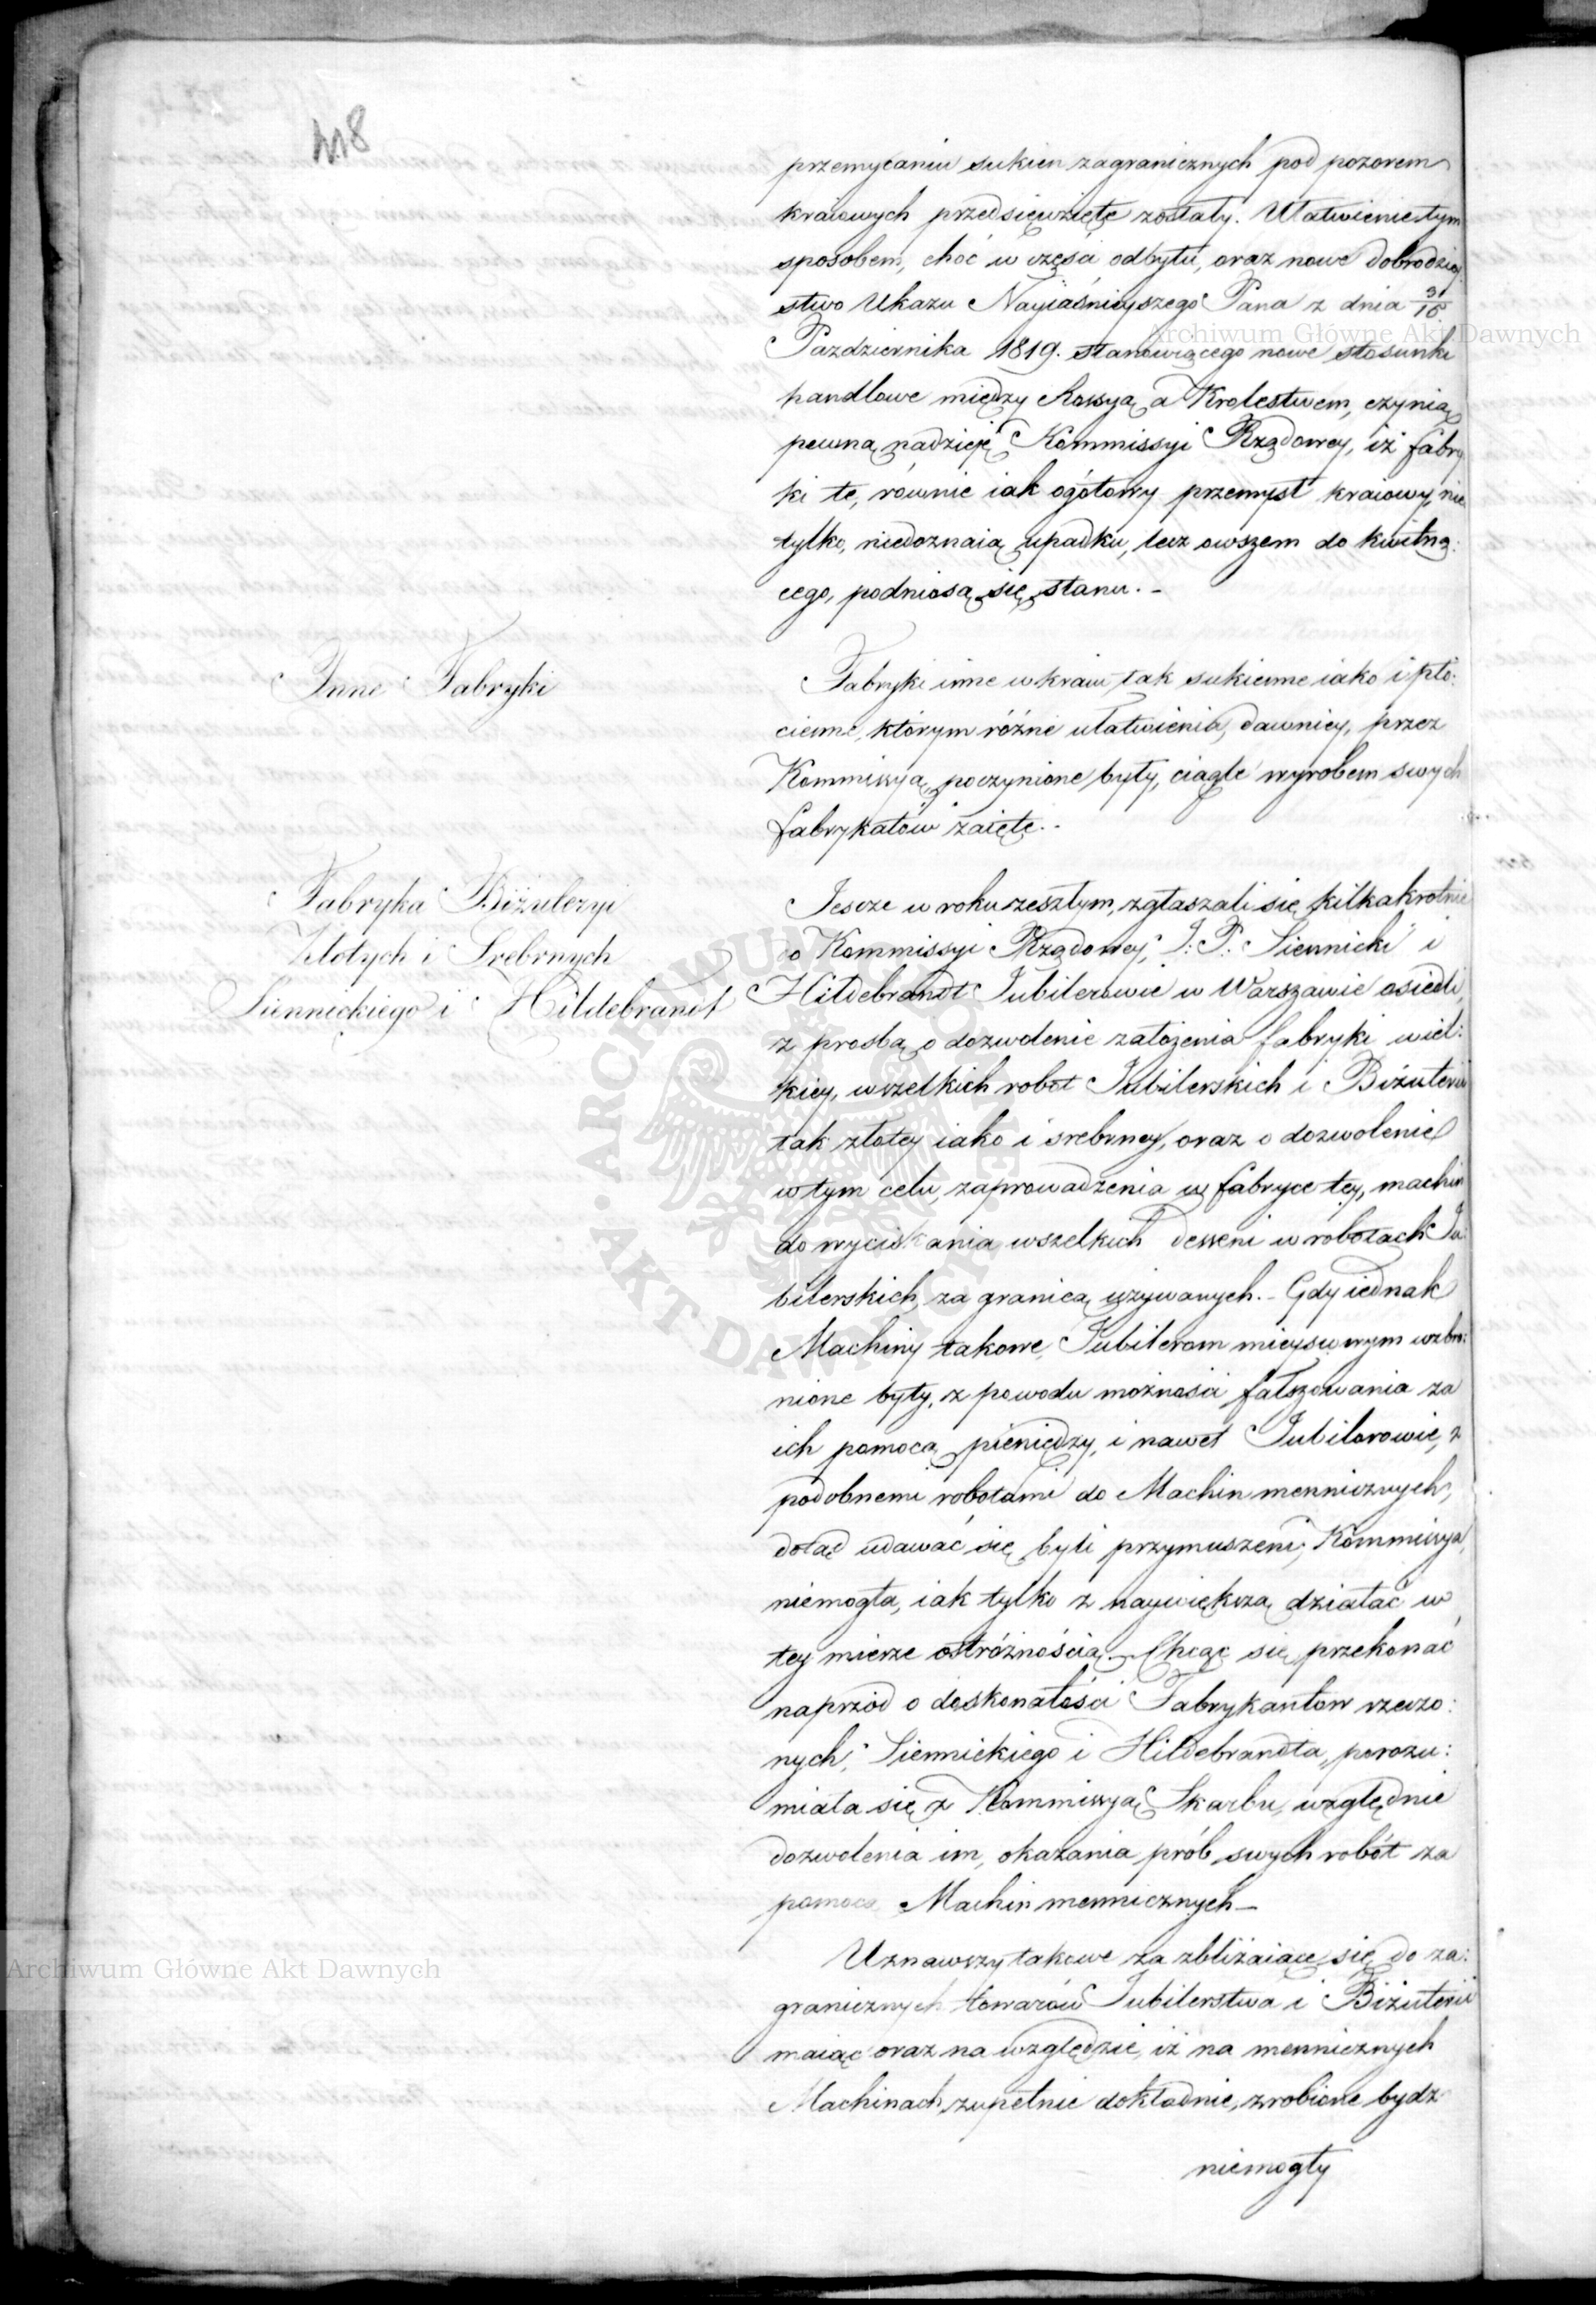 418
przemycaniu sukien zagranicznych pod pozorem
kraiowych przedsięwzięte zostały. Ułatwienie tym
sposobem, choć w części odbytu, oraz nowe dobrodziey
stwo Ukazu Nayiaśnieyszego Pana z dnia
Pazdziernika 1819. stanowiącego nowe stosunki
handlowe między Rossyą a Krolestwem, czynią
pewną nadzieję Kommissyi Rządowey, iż fabry
ki te, równie iak ogółowy przemysł kraiowy, nie
tylko, niedoznaią upadku, lecz owszem do kwitną:
cego, podniosą się stanu. -
Inne Fabryki
Fabryki inne w kraiu tak sukienne iako i płó:
cienne, którym różne ułatwienia, dawniey, przez
Kommissyą poczynione były, ciągle wyrobem swych
fabrykatów zaięte. -
Fabryka Biżuleryi
Złotych i Srebrnych
Siennickiego i Hildebrandt
Iescze w roku zeszłym, zgłaszali się kilkakrotnie
do Kommissyi Rządowey, I. P. Siennicki i
Hildebrandt Iubilerowie w Warszawie osiedli,
z prosbą o dozwolenie założenia fabryki wiel:
kiey, wszelkich robot Iubilerskich i Biżuterii
tak złotey iako i srebrney, oraz o dozwolenie
w tym celu, zaprowadzenia w fabryce tey, machin
do wyciskania wszelkich desseni w robotach Iu:
bilerskich, za granicą używanych. - Gdy iednak
Machiny takowe, Iubilerom mieyscowym wzbro:
nione były, z powodu możności fałszowania za
ich pomocą pieniędzy, i nawet Iubilerowie, z
podobnemi robotami do Machin mennicznych,
dotąd udawać się byli przymuszeni, Kommissya,
niemogła, iak tylko z naywiększą działać w
tey mierze ostróżnością. - Chcąc się przekonać
naprzód o doskonałości Fabrykantow rzeczo:
nych, Siennickiego i Hildebrandta, porozu:
miała się z Kommissyą Skarbu, względnie
dozwolenia im, okazania prób swych robót za
pomocą Machin menniczych -
Uznawszy takowe za zbliżaiące się do za:
granicznych towarów Iubilerstwa i Biżuterii
maiąc oraz na względzie, iż na menniczych
Machinach, zupełnie dokładnie, zrobione bydz
niemogły
Archiwum Główne Akt Dawnych
Archiwum Główne Akt Dawnych
ARCHIWUM GŁÓWNE AKT DAWNYCH